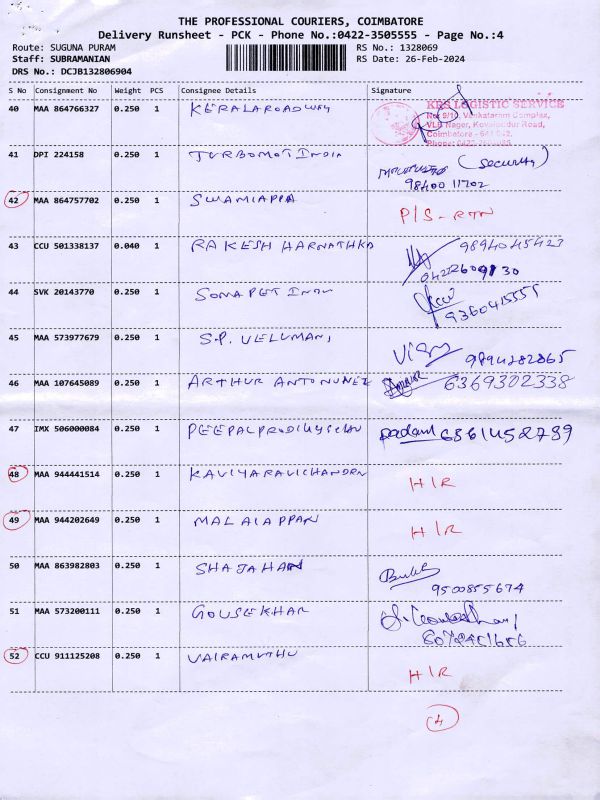 THE PROFESSIONAL COURIERS, COIMBATORE
Delivery Runsheet - PCK - Phone No.:0422-3505555 - Page No.:4
Route: SUGUNA PURAM RS No.: 1328069
Staff: SUBRAMANIAN RS Date: 26-Feb-2024
DRS No.: DCJB132806904
S No Consignment No Weight PCS Consignee Details Signature
40 MAA 864766327 0.250 1 KERALAROADWAY
KRS LOGISTIC SERVICE
Venkataram Complex,
Nager, Kovaipudur Road,
Coimbatore
41 DPI 224158 0.250 1 TURBOMOT INDIA
(Security)
98400 11702
42 MAA 864757702 0.250 1 SWAMIAPPA
P/S - RTN
43 CCU 501338137 0.040 1 RAKESH HARNATHKA 9894045423
44 SVK 20143770 0.250 1 SOMAPET INDIA
9360415555
45 MAA 573977679 0.250 1 S.P. VELUMANI
9894282865
46 MAA 107645089 0.250 1 ARTHUR ANTONUNEZ 6369302338
47 IMX 506000084 0.250 1
48 MAA 944441514 0.250 1 KAVIYARAVICHANDRN
H/R
49 MAA 944202649 0.250 1 MALAIAPPAN
H/R
50 MAA 863982803 0.250 1 SHAJAHAN
9500855674
51 MAA 573200111 0.250 1 GOUSEKHAR
52 CCU 911125208 0.250 1 VAIRAMUTHU
H/R
4